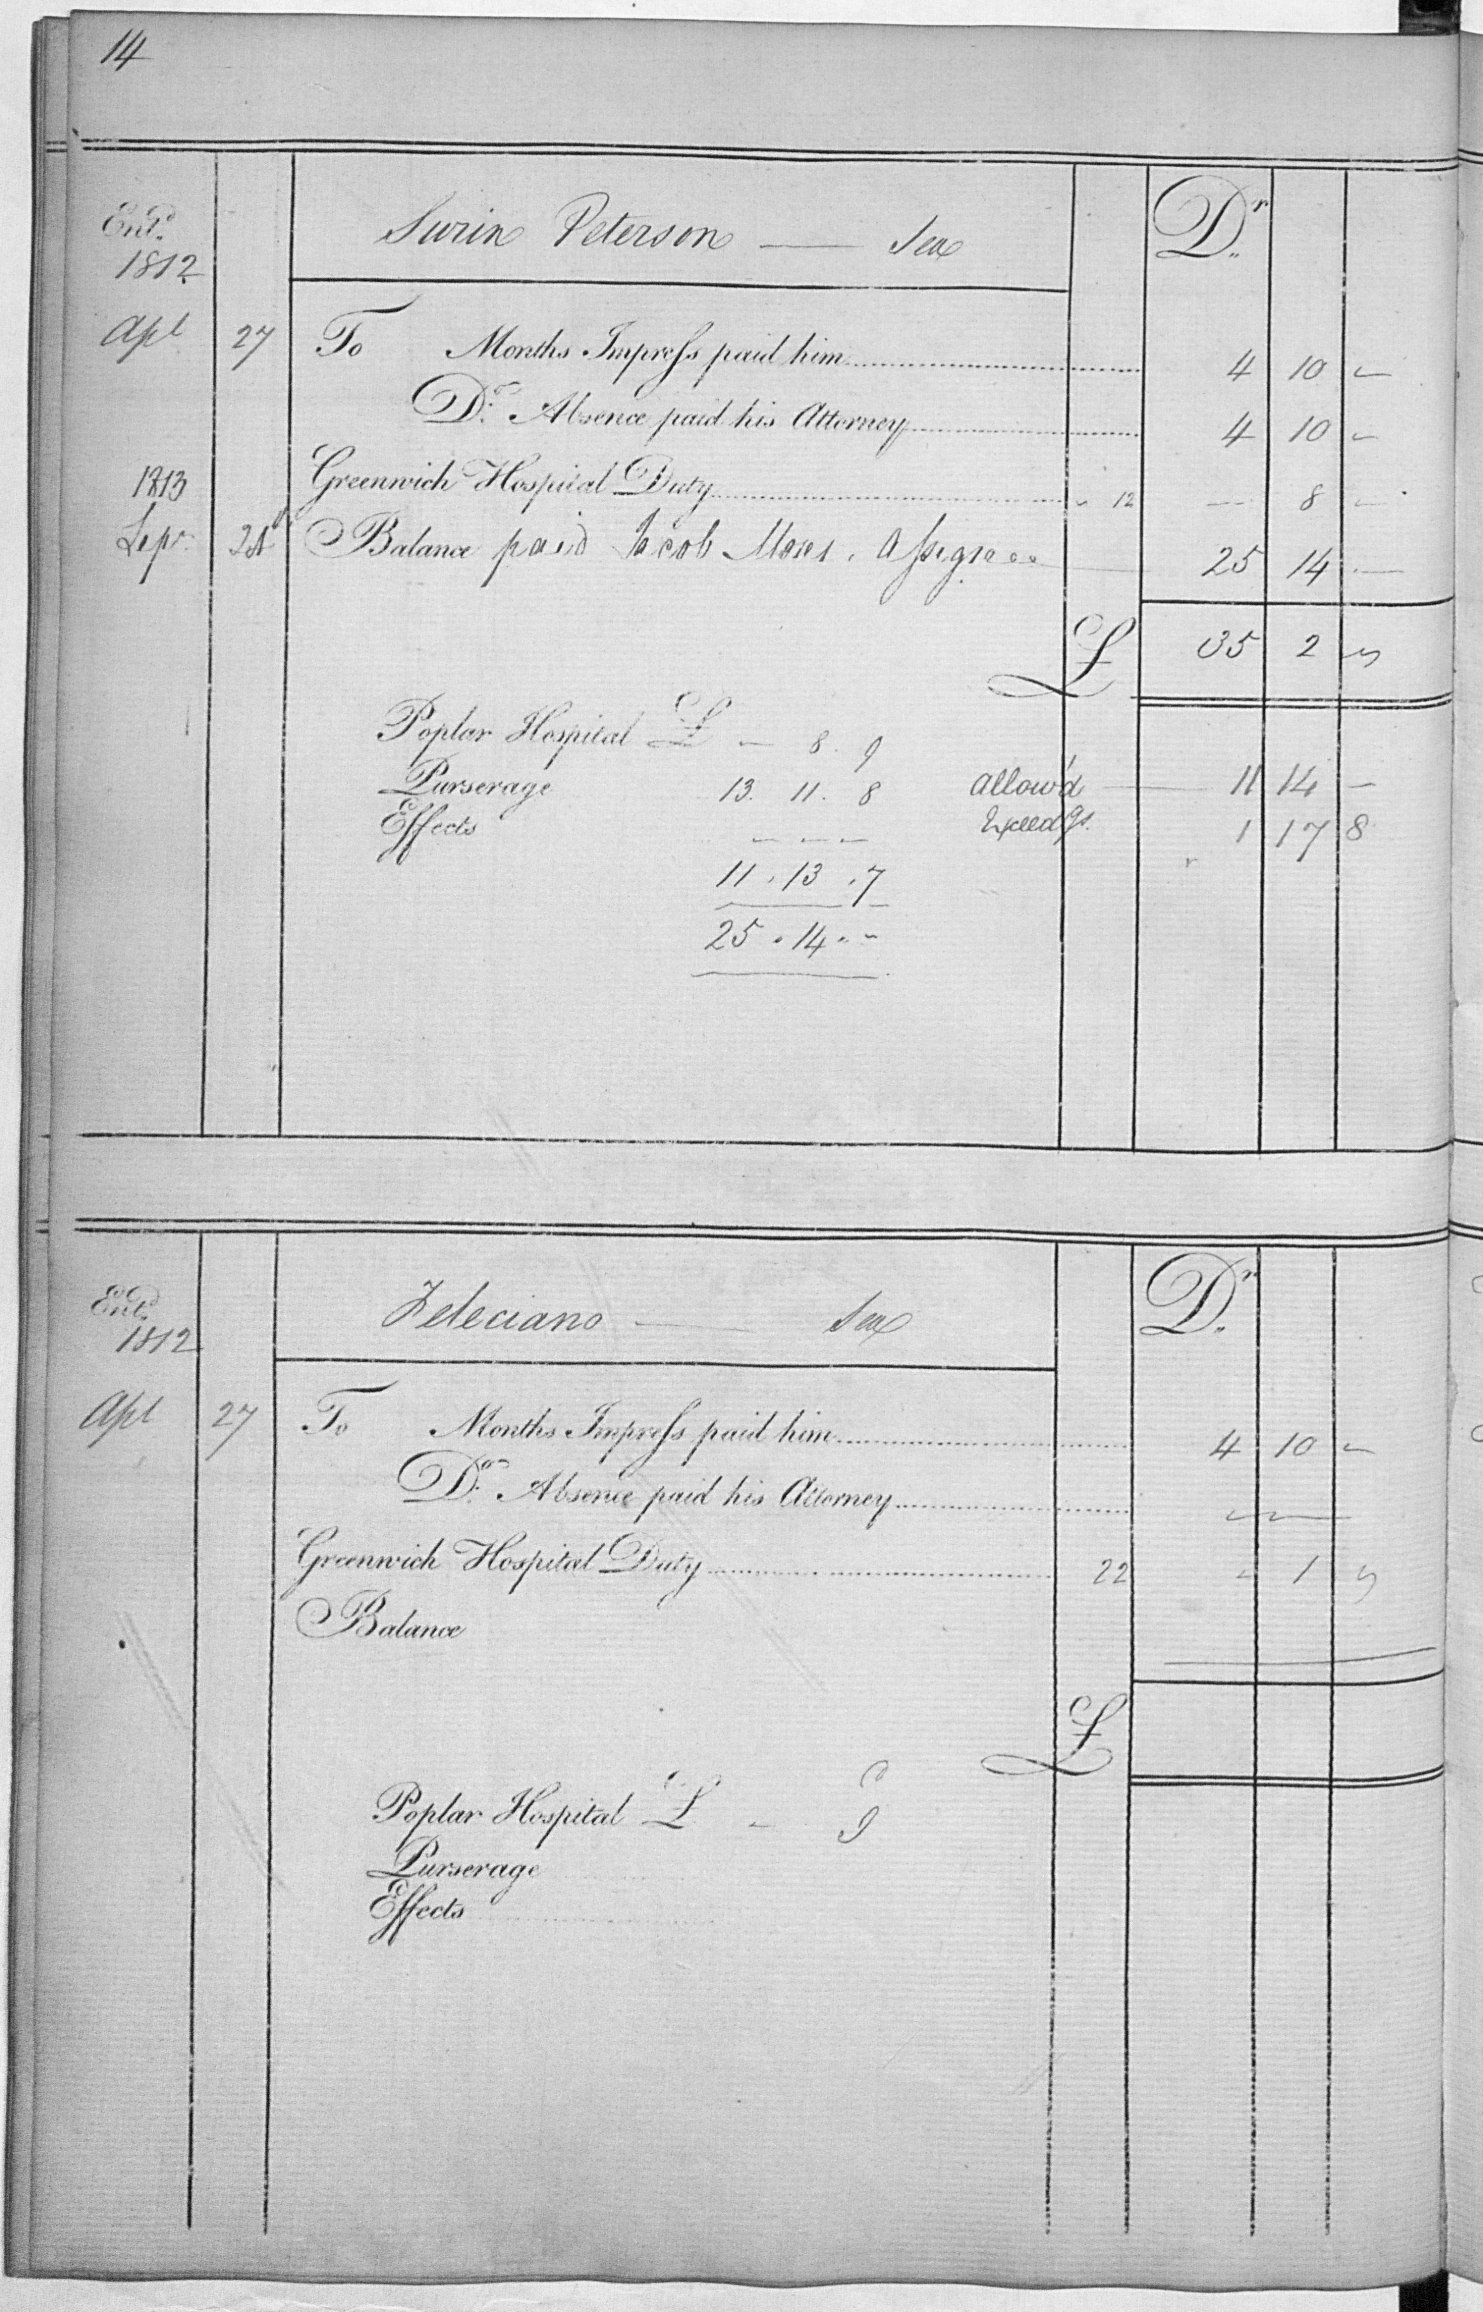 14
Entd. Surin Peterson — Sea Dr.
1812
Apl 27 To Months Impress paid him 4 10 –
Do. Absence paid his Attorney 4 10 –
1813 Greenwich Hospital Duty 12 – 8 –
Sepr. Balance paid Jacob Moses. Assignee 25 14 –
£ 35 2 –
Poplar Hospital £ – 8. 9
Purserage 13. 11. 8 Allow'd 11 14 –
Effects – – – Exceedgs. 1 17 8
11. 13. 7
25. 14. –
Entd. Feleciano — Sea Dr.
1812
Apl 27 To Months Impress paid him 4 10 –
Do. Absence paid his Attorney –
Greenwich Hospital Duty 22 – 1 –
Balance
£
Poplar Hospital £ – 9
Purserage
Effects